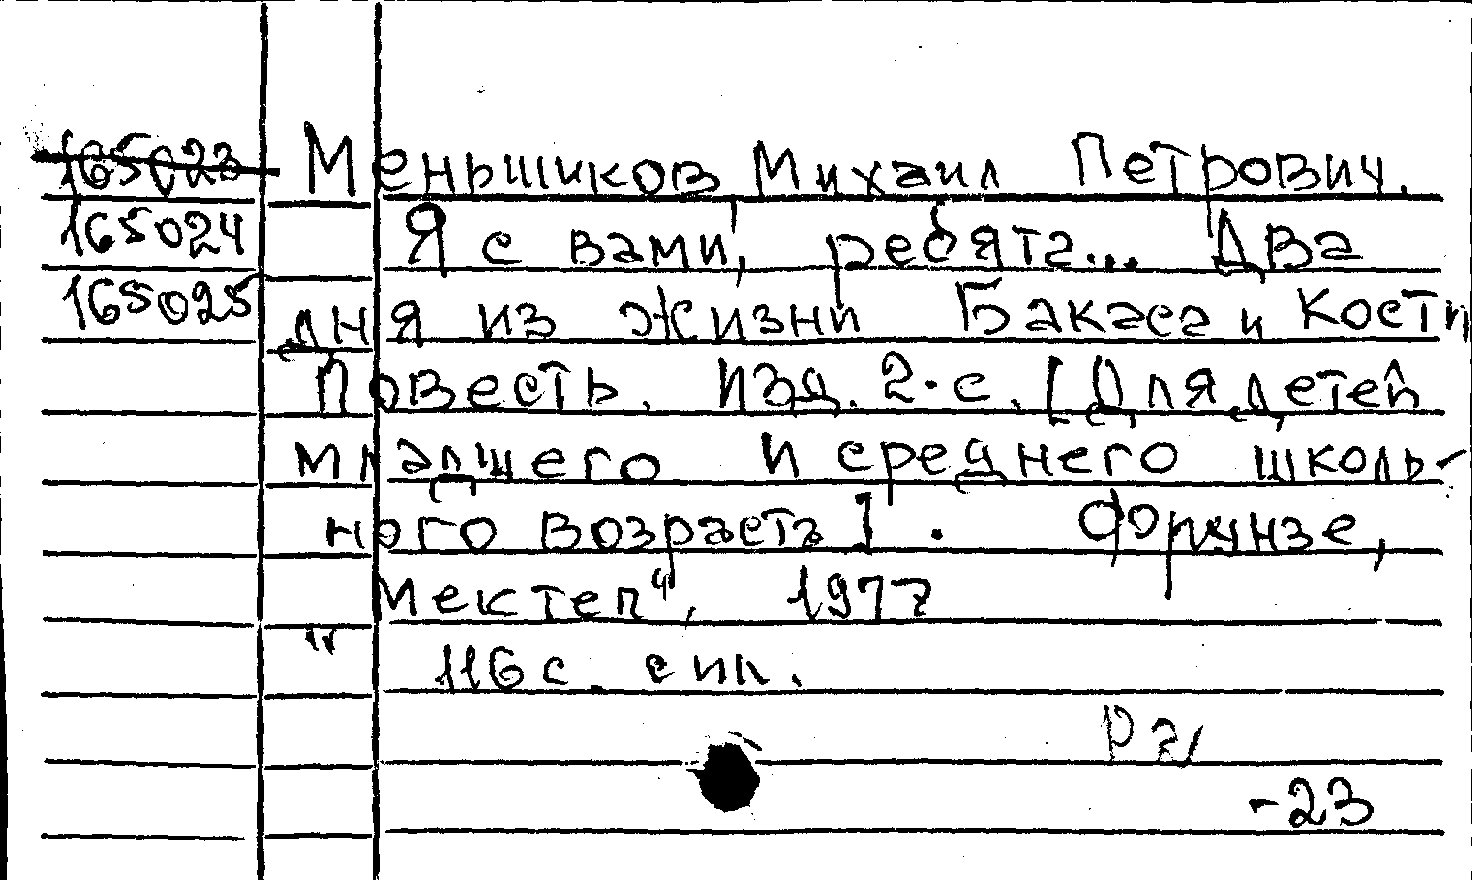 165023 Меньшиков Михаил Петрович.
165024 Я с вами, ребята... Два
165025 дня из жизни Бакаса и Кости
Повесть. Изд. 2-е. [Для детей
младшего и среднего школь-
ного возраста]. Фрунзе,
"Мектеп", 1977
116 с. с ил.
-23